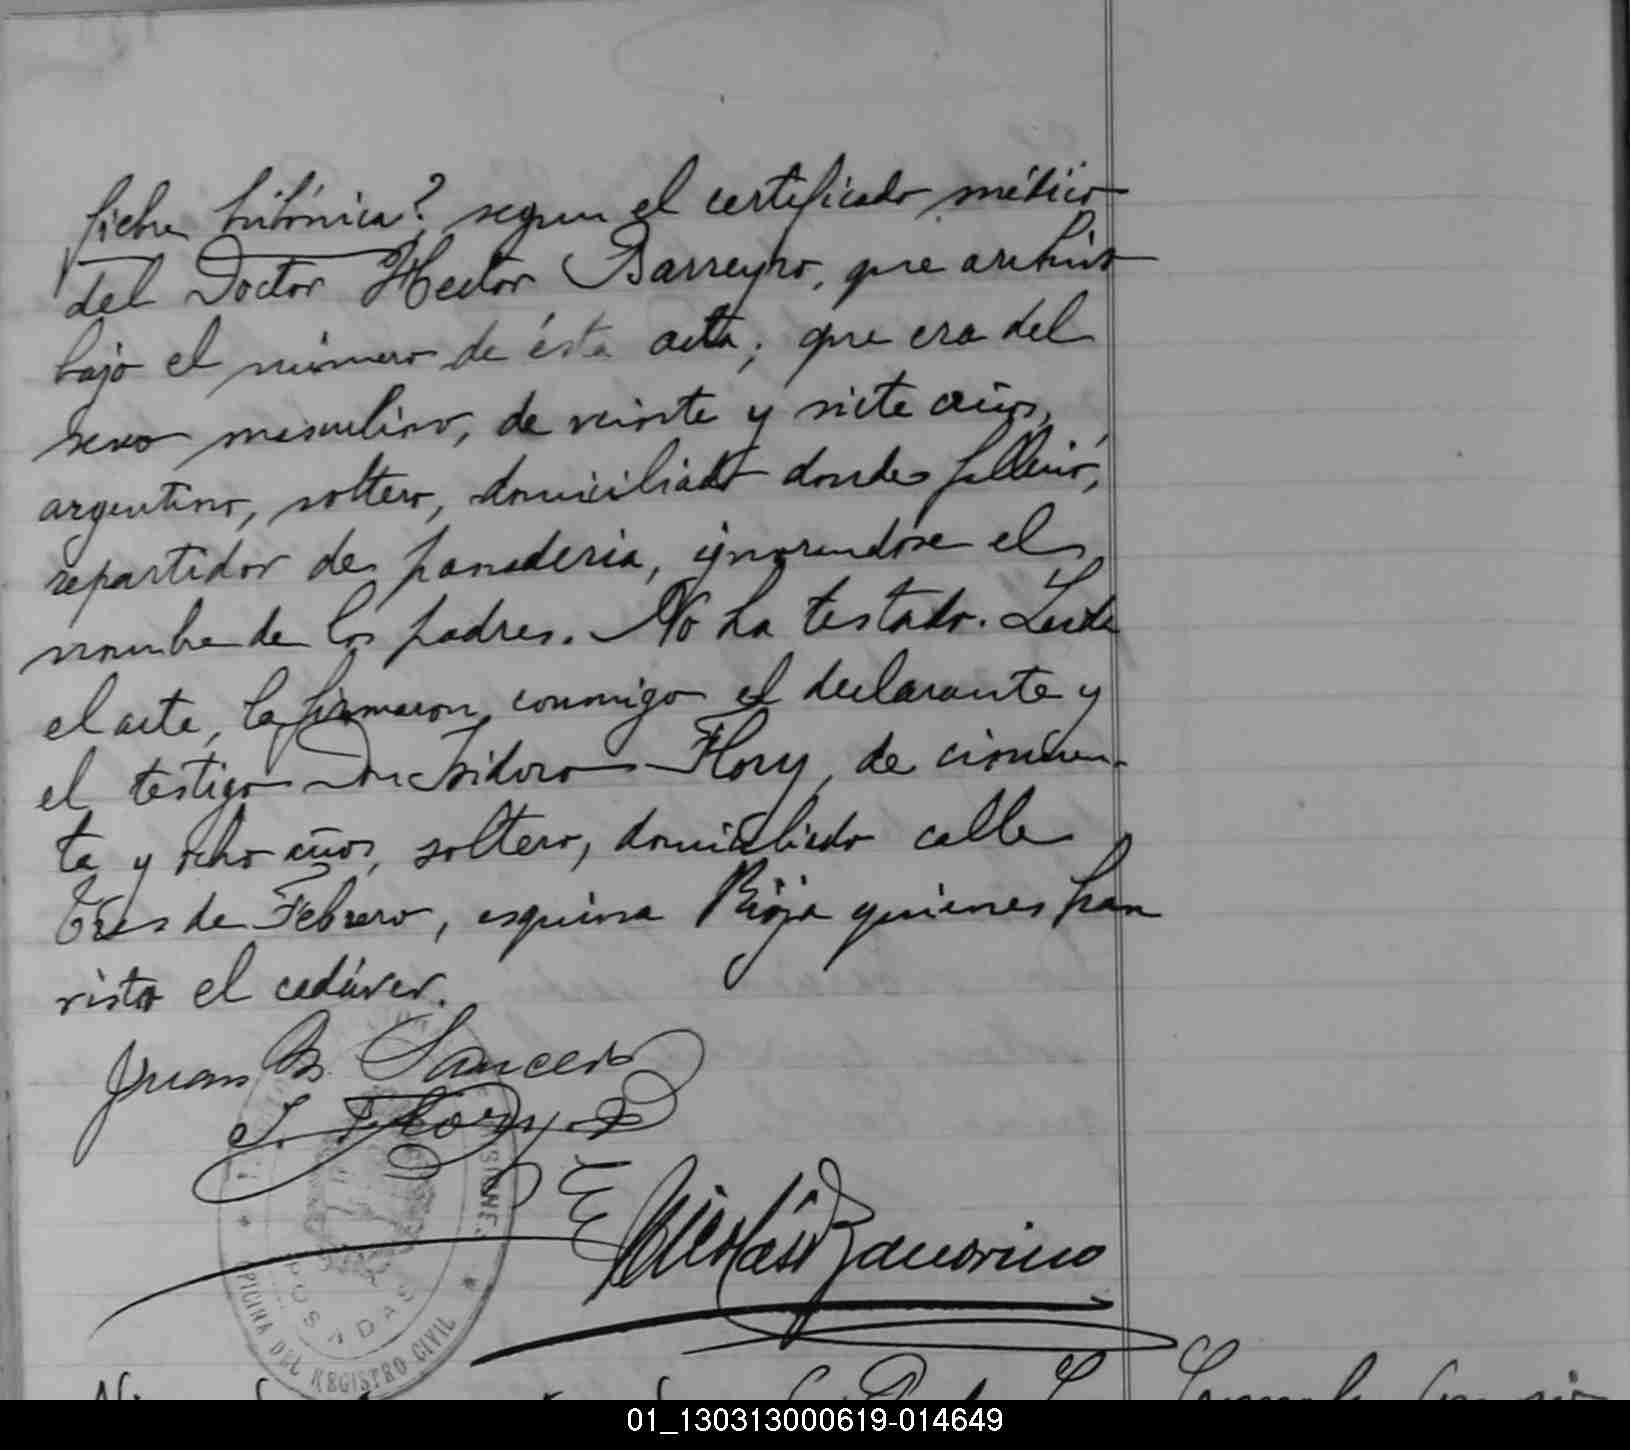 fiebre bubónica? segun el certificado médico
del Doctor Hector Barreyro, que archivo
bajo el número de ésta acta; que era del
sexo masculino, de veinte y siete años,
argentino, soltero, domiciliado donde falleció,
repartidor de panaderia, ignorandose el
nombre de los padres. No ha testado. Leida
el acta, la firmaron conmigo el declarante y
el testigo Don Isidoro Flory, de cincuen-
ta y ocho años, soltero, domiciliado calle
Tres de Febrero, esquina Rioja quienes han
visto el cadáver.
Juan B.
I. Flory
Nicolás
MISIONES
POSADAS
OFICINA DEL REGISTRO CIVIL
01_130313000619-014649